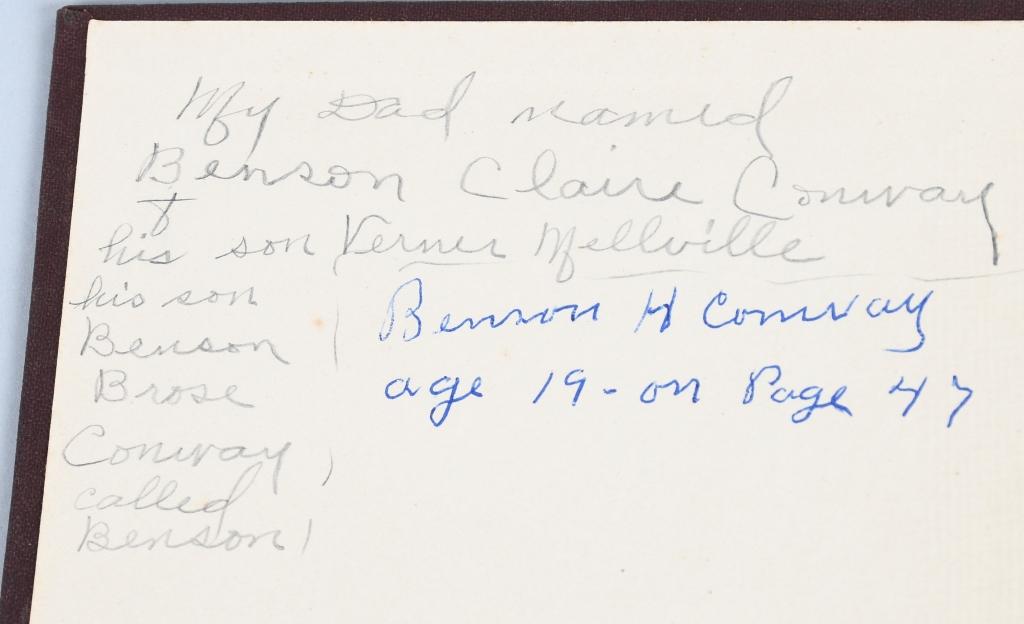 My Dad named
Benson Claire Conway
&
his son Verner Mellville
his son
Benson
Brose
Conway
called
Benson
Benson H Conway
age 19 - on Page 47